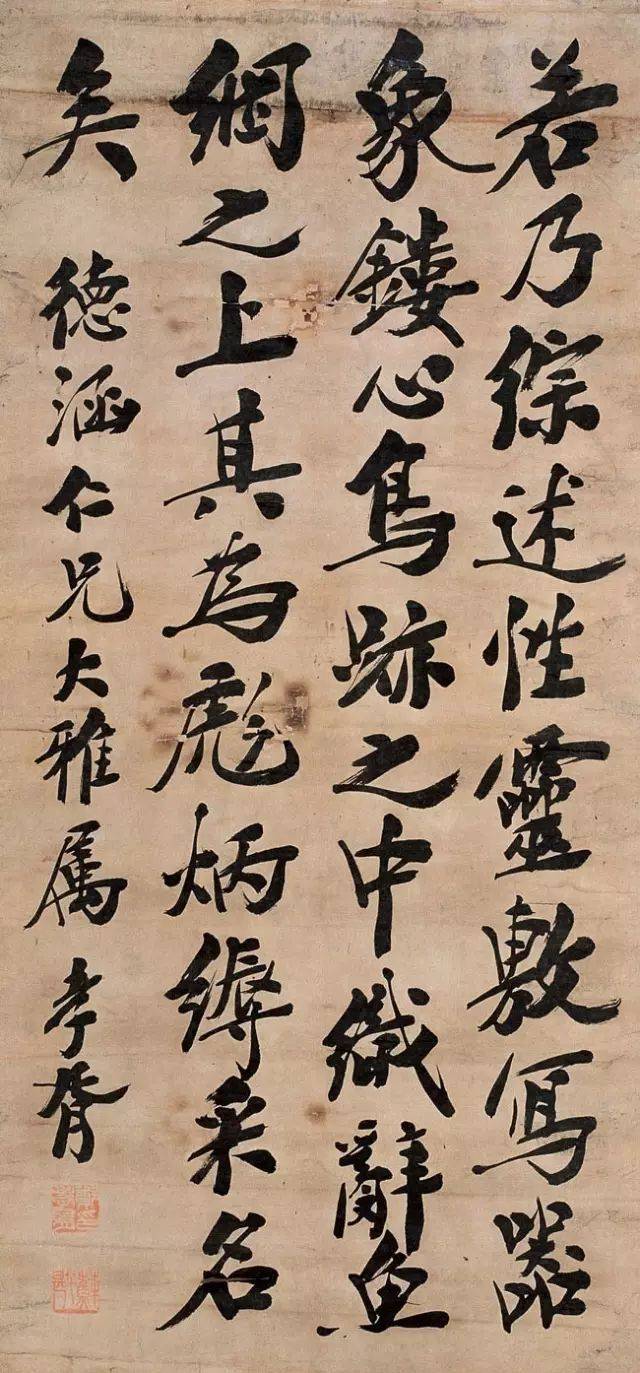 若乃綜述性靈敷寫器
象鏤心鳥跡之中織辭魚
網之上其為彪炳縟采名
矣 德涵仁兄大雅属 孝胥